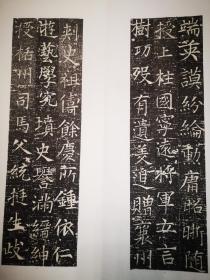 端英謨紛綸勳庸昭晰随
授上柱國寧遠將軍立言
樹功殁有遺美追贈襄州
刺史祖儔餘慶所鍾依仁
遊藝學究墳史譽滿縉紳
授梧州司馬父統挺生歧